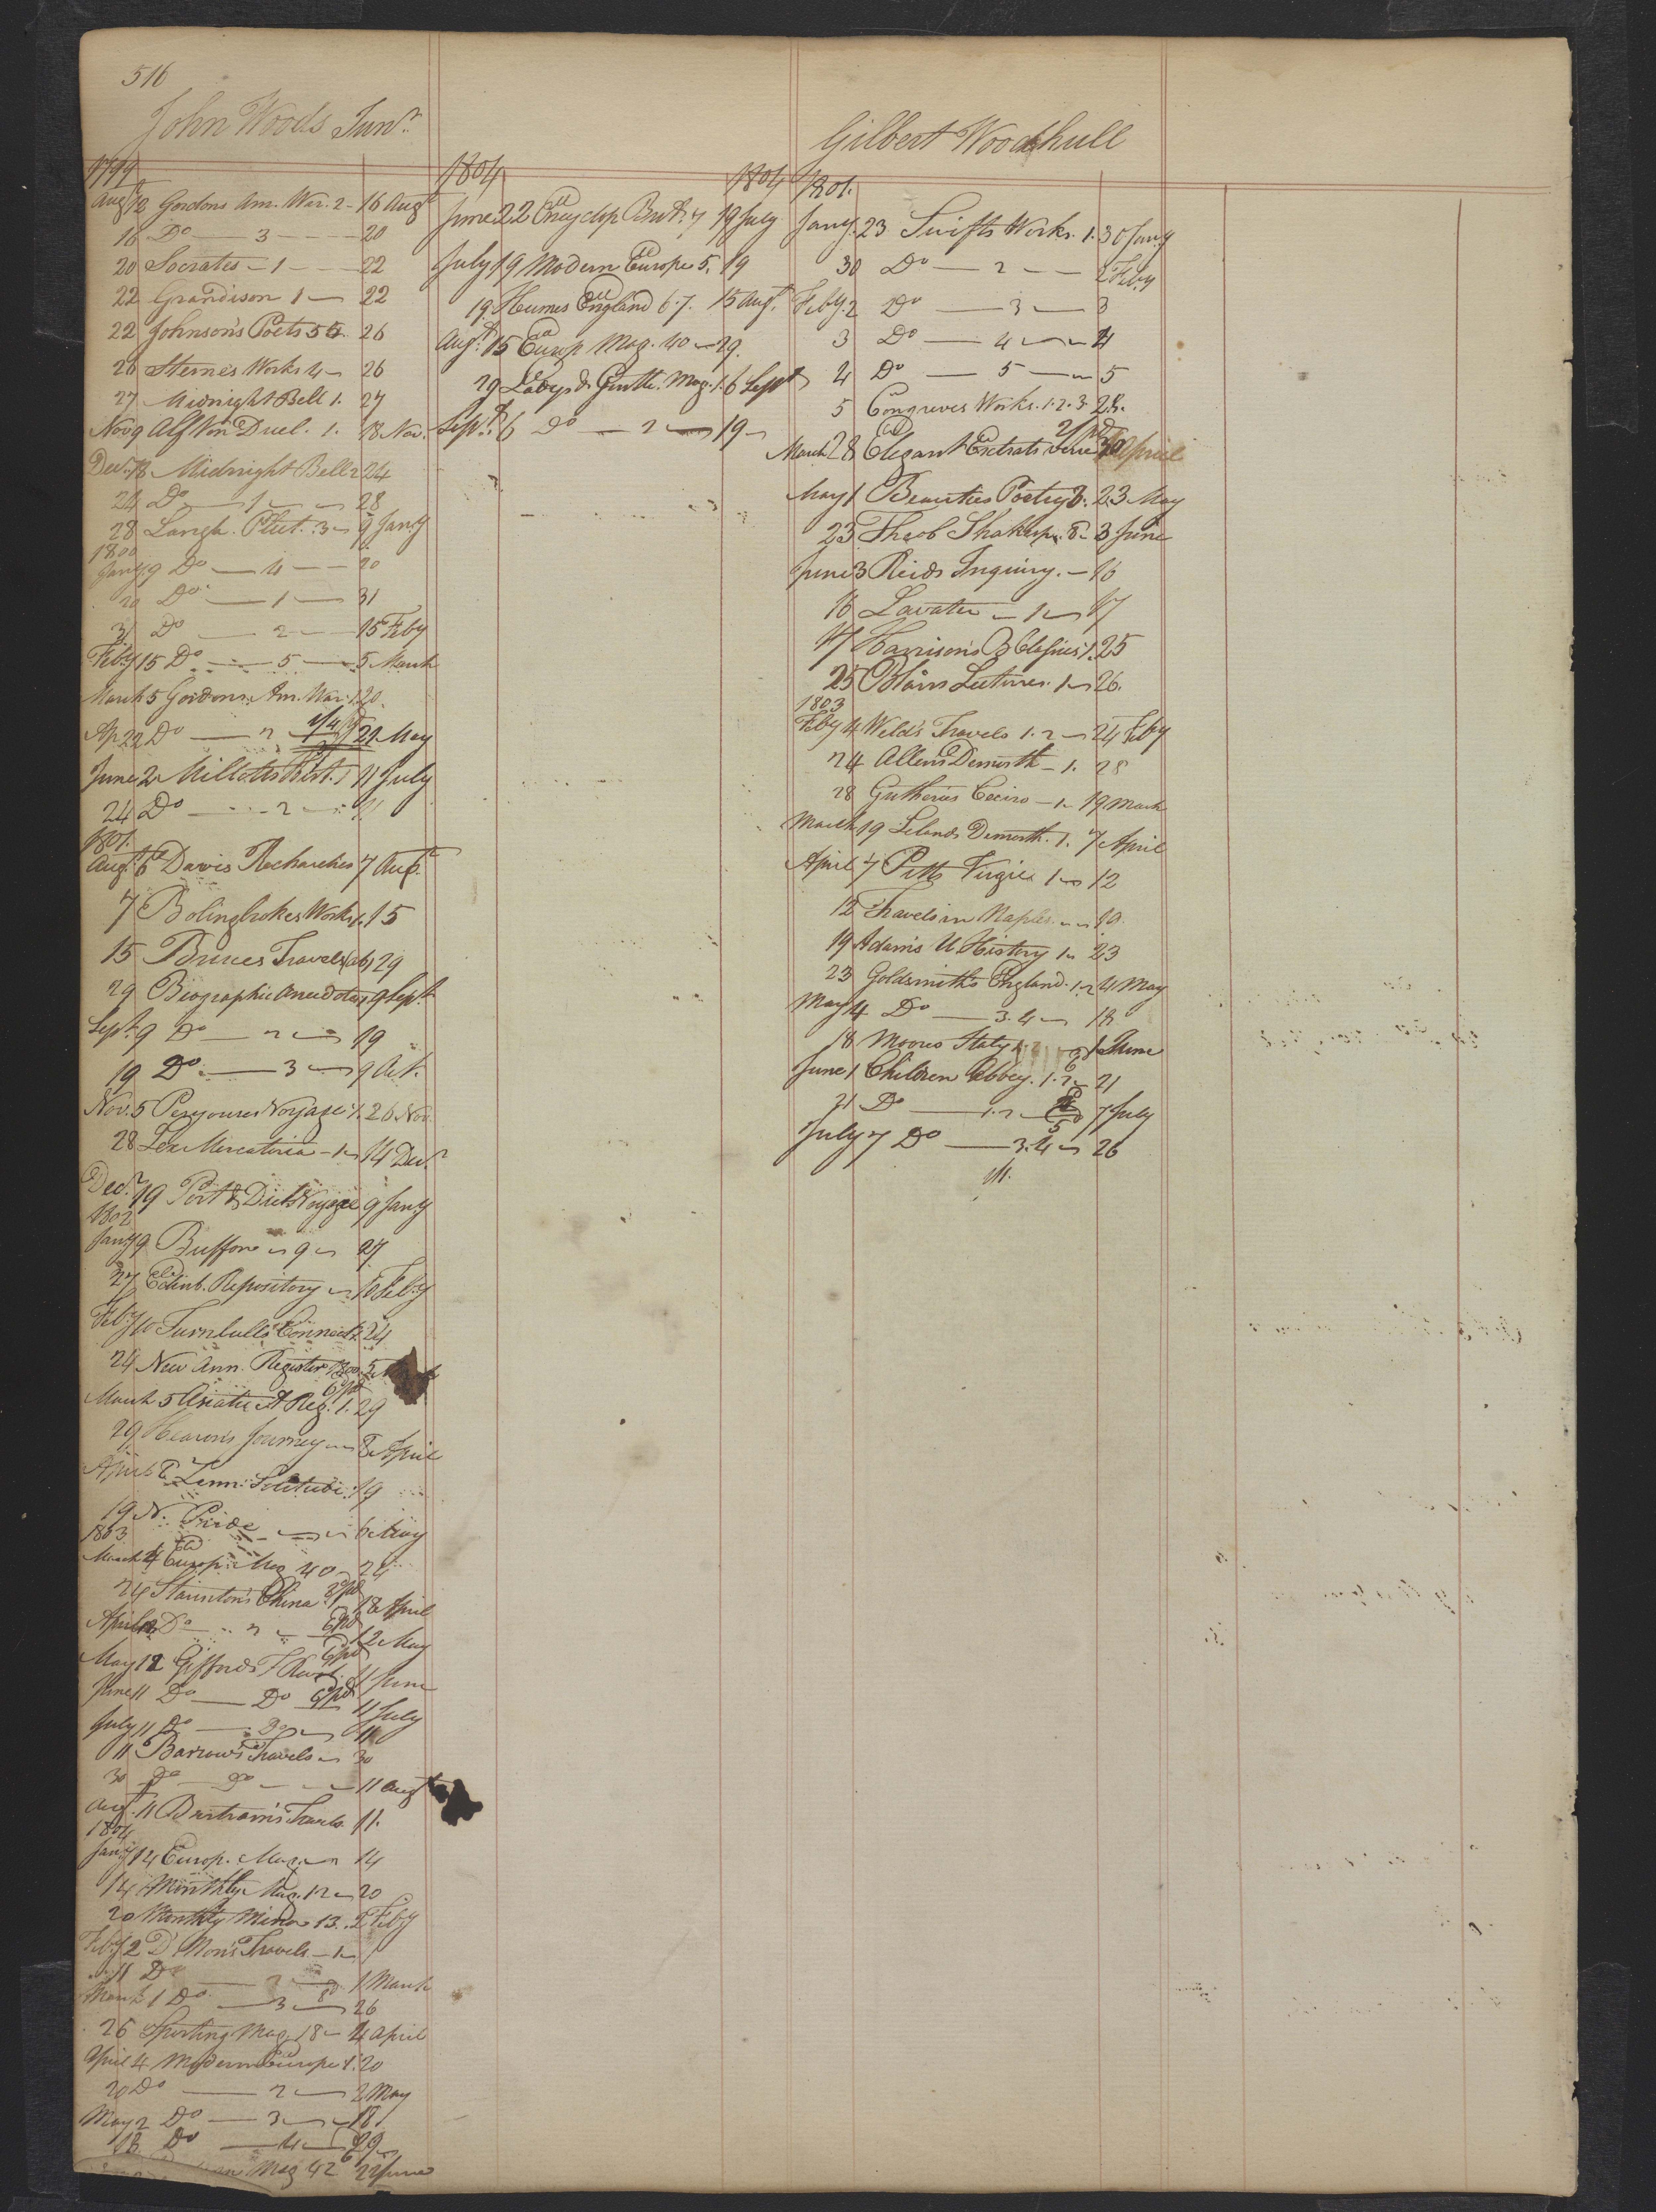 516
John Woods Junr.
1799
Augt 12 Gordons Am. War. 2 - 16 Augt
16 Do — 3 — 20
20 Socrates - 1 - 22
22 Grandison 1 - 22
22 Johnson's Poets 56. 26
26 Sternes Works 4 - 26
27 Midnight Bell 1. 27
Nov 9 Alf Von Duel. 1. 18 Nov.
Decr. 18 Midnight Bell 2 24
24 Do — 1 — 28
28 Langh. Plut. 3 - 9 Jany
1800
Jany 9 Do — 4 — 20
20 Do — 1 — 31
31 Do — 2 — 15 Feby
Feby 15 Do — 5 — 5 March
March 5 Gordons Am. War. 1. 20.
Ap 22 Do — 2 1/4 pd 21 May
June 2 Millotts Hist. 1 11 July
24 Do — 2 — 11
1801.
Augt. 6 Davis 7 Augt.
7 Bolingbrokes Works 1. 15
15 Bruces Travels (ab) 29
29 Biographic Anecdotes 1 9 Sept
Sept. 9 Do — 2 — 19
19 Do — 3 — 9 Oct.
Nov. 5 Voyage 1. 26 Nov.
28 Lex Mercatoria - 1 - 14 Decr
Decr. 19 Port & Dix Voyage 9 Jany
1802
Jany 9 Buffon - 9 - 27
27 Edinb. Repository - 10 Feby
Feby 10 Turnbulls Connect. 24
24 New Ann. Register 1800. 5
6 pd
March 5 Asiatic A Reg. 1. 29
29 Hearn's Journey - 8 April
April 8 Zimm. Solitude. 19
19 N. Pride — 6 May
1803
March 4 Europ. Mag 40 - 24
24 Staunton's China 1 18 April
April 18 Do — 2 — 6 pd 12 May
May 12 Giffords F Revol. 11 June
June 11 Do — Do 6 pd 11 July
July 11 Do — Do — 11
11 Barrow's Travels - 30
30 Do — Do — 11 Augt
Augt. 11 Bartram's Travels 11.
1804
Jany 14 Europ. Mag. — 14
14 Monthly Mag. 12 - 20
20 Monthly Mirror 13. 2 Feby
Feby 2 D' Mon's Travels - 1 -
11 Do — 2 — 1 March
March 1 Do — 3 — 26
26 Sporting Mag. 18 - 4 April
April 4 Modern Europe 1. 20
20 Do — 2 — 2 May
May 2 Do — 3 — 18
18 Do — 4 — 29
Mag 42 22 June
1804 1804
June 22 Encyclop. Brit. 7 19 July
July 19 Modern Europe 5. 19
19 Humes England 6.7. 15 Augt.
Augt. 15 Europ Mag. 40 - 29.
29 Ladys & Gentle. Mag. 1. 6 Sept
Sept. 6 Do — 2 — 19 -
Gilbert Woodhull
1801.
Jany. 23 Swifts Works. 1. 30 Jany
30 Do — 2 — 2 Feby
Feby. 2 Do — 3 — 3
3 Do — 4 — 4
4 Do — 5 — 5
5 Congreves Works. 1.2.3. 28.
2/ pd
March 28 Elegant Extrats verse 30 April
May 1 Beauties Poetry 3. 23 May
23 Theob Shakesp. 8 - 3 June
June 3 Reids Inquiry. - 16
16 Lavater - 1 - 17
17 Harrison's B Clasicks 1. 25
25 Blairs Lectures. 1 - 26.
1803
Feby 4 Weld's Travels 1.2 - 24 Feby
24 Allens Demosth - 1. 28
28 Guthries Ceciro - 1 - 19 March
March 19 Lelands Demosth. 1. 7 April
April 7 Pitts Virgil 1 - 12
12 Travels in Naples — 19.
19 Adam's U History 1 - 23
23 Goldsmiths England. 1.2 4 May
May 4 Do — 3.4 - 18
18 Moores Italy 1 June
June 1 Children Abbey. 1.2 - 21
21 Do — 1.2 — 7 July
July 7 Do — 3.4 - 26